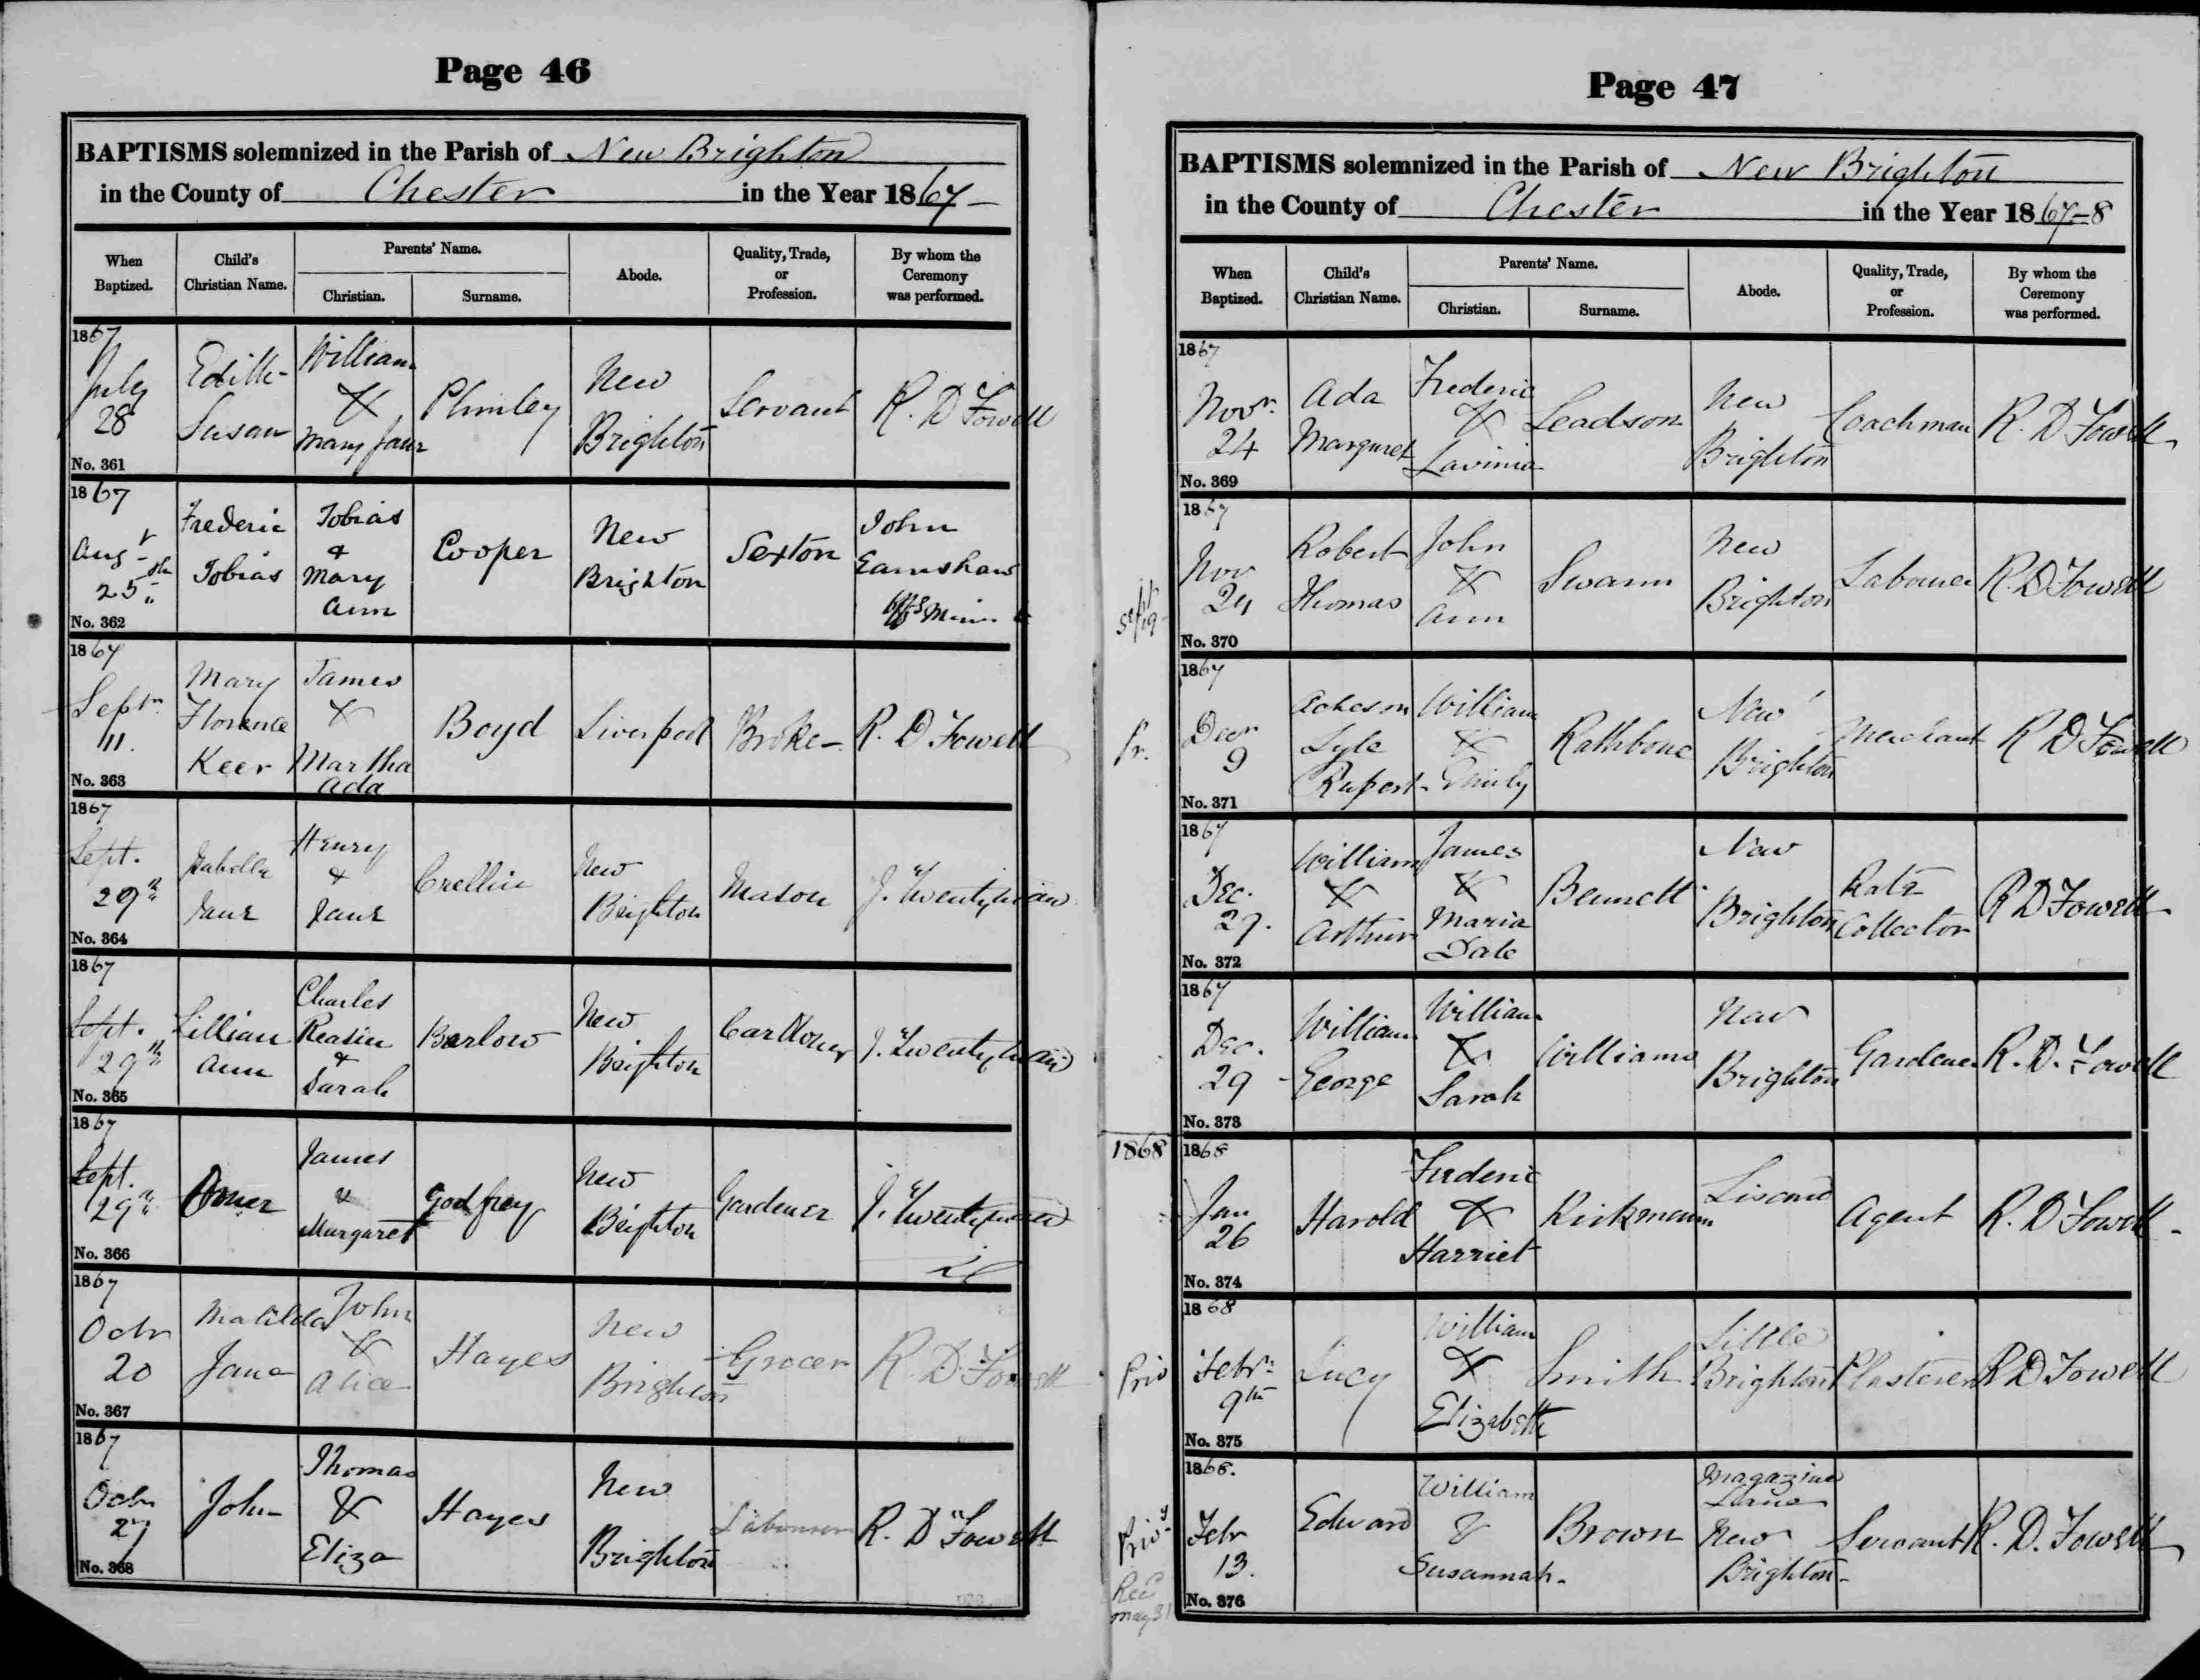 Page 46
BAPTISMS solemnized in the Parish of New Brighton
in the County of Chester in the Year 1867
When Baptized. Child's Christian Name. Parents' Name. Christian. Surname. Abode. Quality, Trade, or Profession. By whom the Ceremony was performed.
1867 July 28 Edith Susan William & Mary Jane Plumley New Brighton Servant R. D Fowell
No. 361
1867 Augt 25th Frederic Tobias Tobias & Mary Ann Cooper New Brighton Sexton John Earnshaw Offg Minr
No. 362
1867 Septr 11. Mary Florence Keer James & Martha Ada Boyd Liverpool Broker R. D Fowell
No. 363
1867 Sept. 29th Isabella Jane Henry & Jane Crellin New Brighton Mason J. Twentyman
No. 364
1867 Sept. 29th Lillian Ann Charles & Sarah Barlow New Brighton J. Twentyman
No. 365
1867 Sept. 29th James & Margaret Godfrey New Brighton Gardener J. Twentyman
No. 366
1867 Octr 20 Matilda Jane John & Alice Hayes New Brighton Grocer R. D. Fowell
No. 367
1867 Octr 27 John Thomas & Eliza Hayes New Brighton Labourer R. D Fowell
No. 368
Page 47
BAPTISMS solemnized in the Parish of New Brighton
in the County of Chester in the Year 1867-8
When Baptized. Child's Christian Name. Parents' Name. Christian. Surname. Abode. Quality, Trade, or Profession. By whom the Ceremony was performed.
1867 Novr. 24 Ada Margaret Frederic & Lavinia Leadson New Brighton Coachman R. D Fowell
No. 369
Sept 19
1867 Nov 24 Robert Thomas John & Ann Swann New Brighton Labourer R. D Fowell
No. 370
Pr.
1867 Decr 9 Acheson Lyle Rupert William & Emily Rathbone New Brighton Merchant R D Fowell
No. 371
1867 Dec. 27. William & Arthur James & Maria Date Bennett New Brighton Rate Collector R D Fowell
No. 372
1867 Dec. 29 William George William & Sarah Williams New Brighton Gardener R. D. Fowell
No. 373
1868
1868 Jan 26 Harold Frederic & Harriet Rickmann Liscard Agent R. D Fowell
No. 374
Priv
1868 Febr. 9th Lucy William & Elizabeth Smith Little Brighton Plasterer R D Fowell
No. 375
Privy
Recd may 31
1868. Febr 13. Edward William & Susannah Brown Magazine Lane New Brighton Servant R. D. Fowell
No. 376